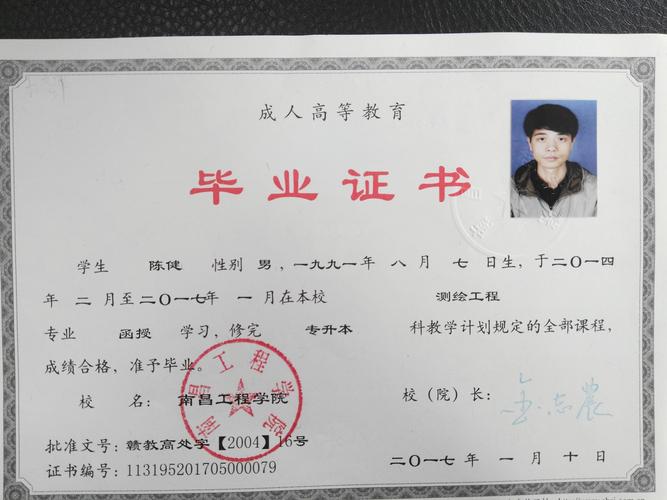 成人高等教育
毕业证书
学生 陈健 性别 男，一九九一年 八 月 七 日生，于二〇一四
年 二 月至二〇一七年 一 月在本校 测绘工程
专业 函授 学习，修完 专升本 科教学计划规定的全部课程，
成绩合格，准予毕业。
校 名： 南昌工程学院 校（院）长： 金志農
批准文号：赣教高处字【2004】16号
证书编号：113195201705000079 二〇一七年 一 月 十 日
南昌工程学院